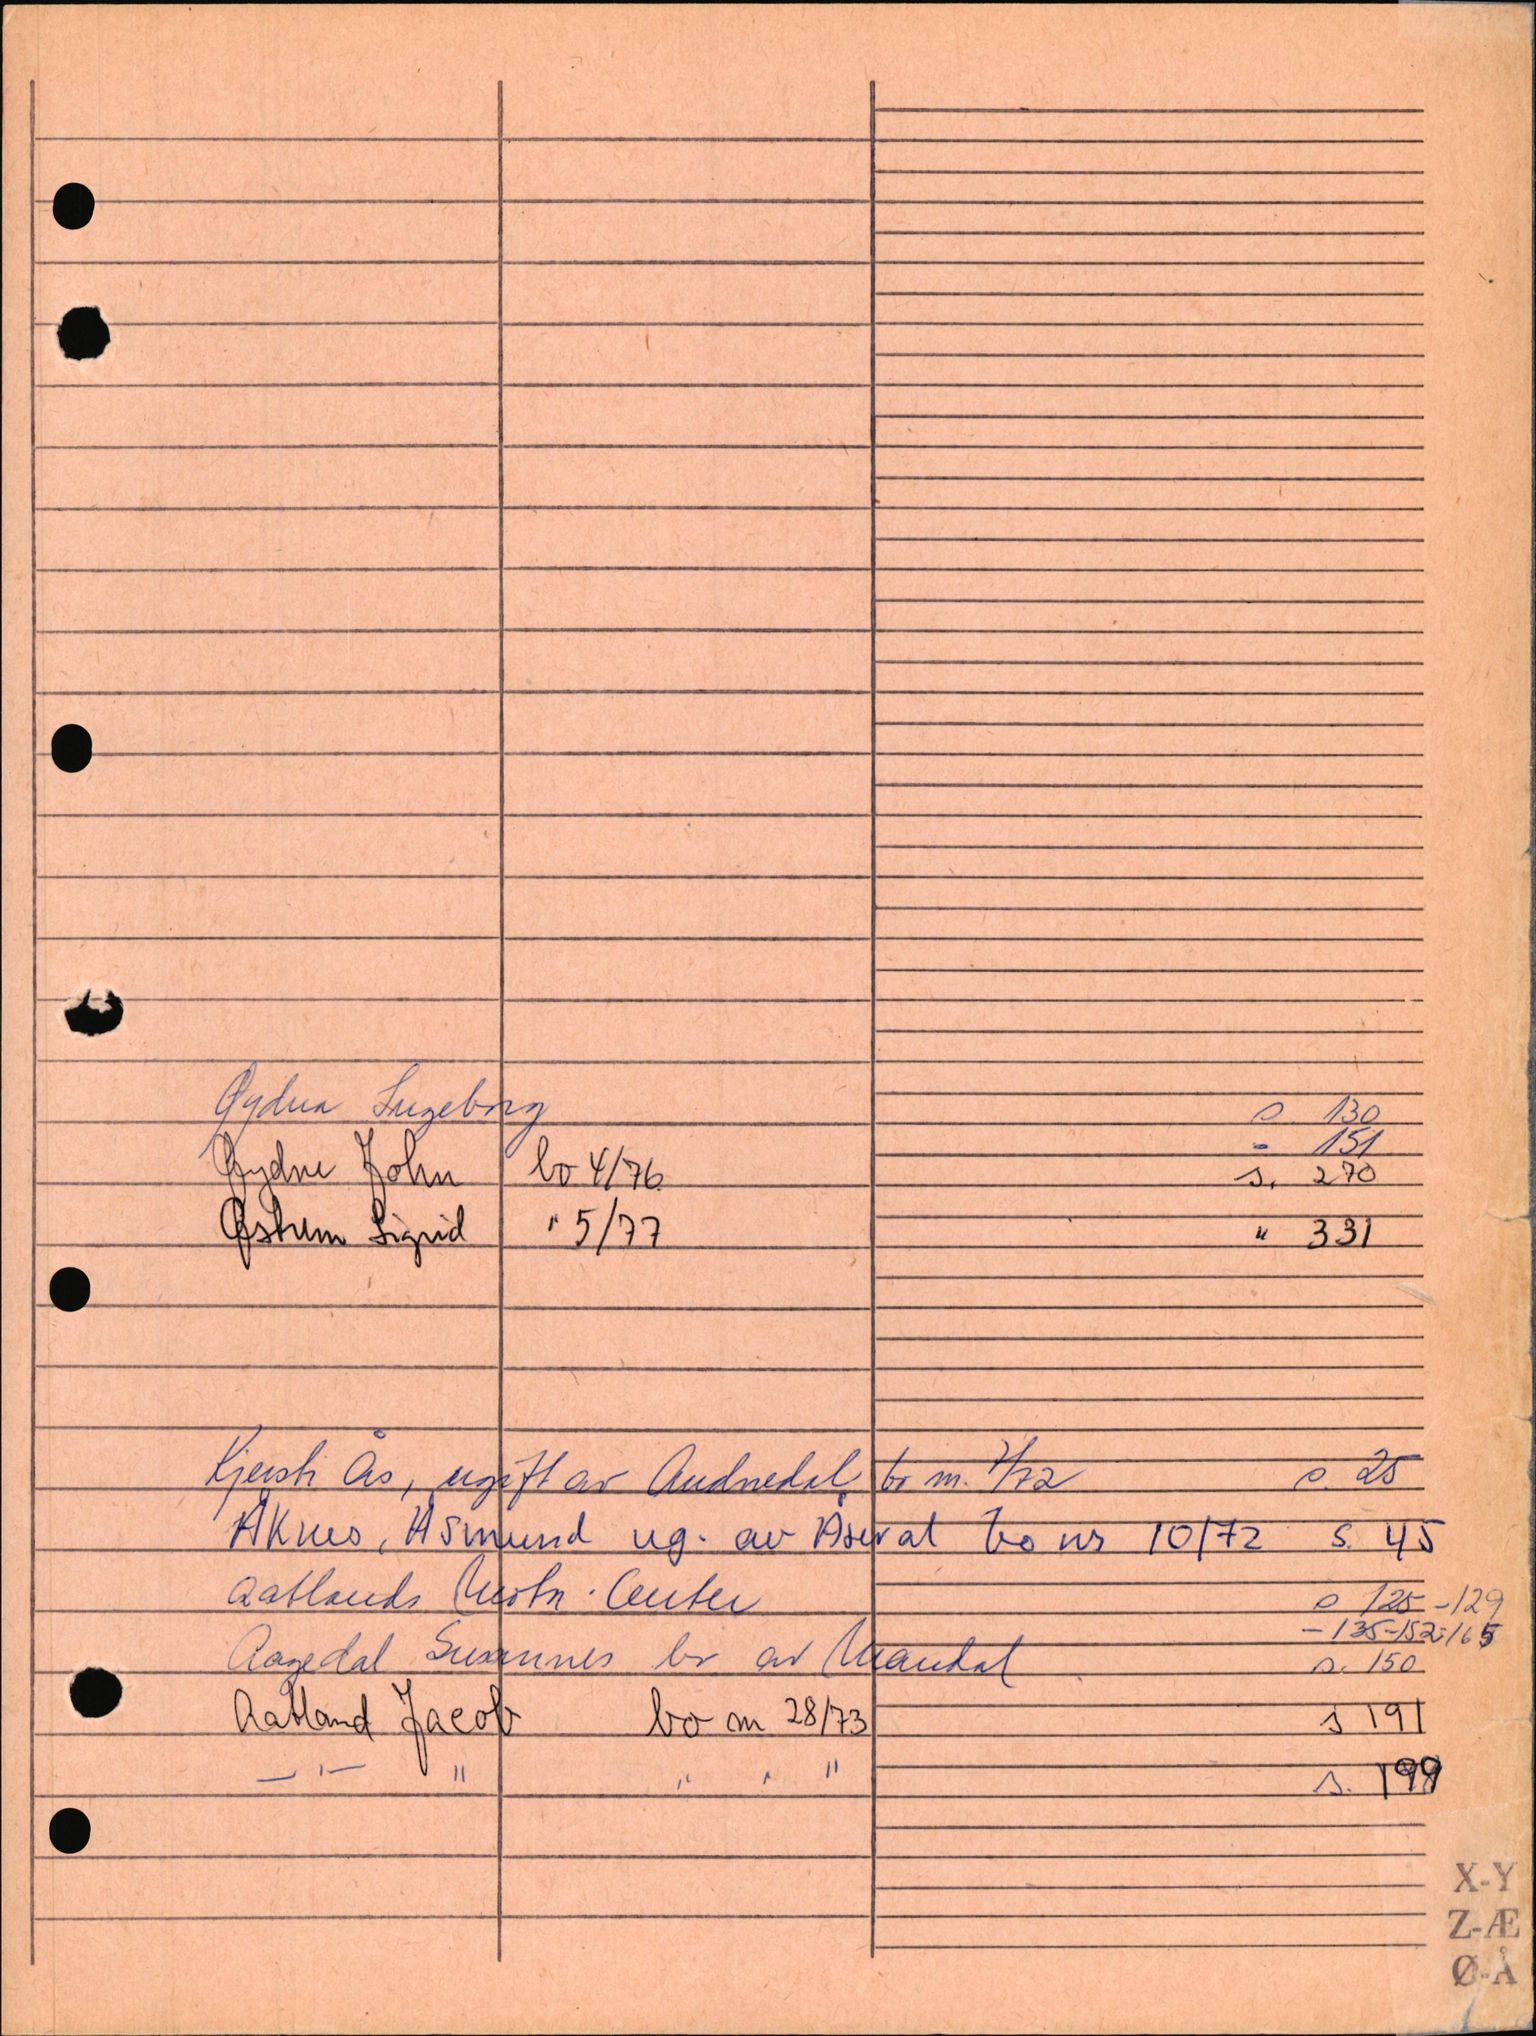 Øydna Ingeborg s. 130
- 151
Øydne John bo 4/76 s. 270
Østrem Sigrid " 5/77 " 331
Kjersti Ås, ugift av Audnedal, bo nr. 7/72 s. 25
Åknes, Åsmund ug. av Åseral bo nr 10/72 s. 45
Aatlands Motor-Center s 125-129
- 135-152-165
Aagedal Susannes bo av Mandal s. 150
Aatland Jacob bo nr 28/73 s 191
— " — " " " " s. 199
X-Y
Z-Æ
Ø-Å